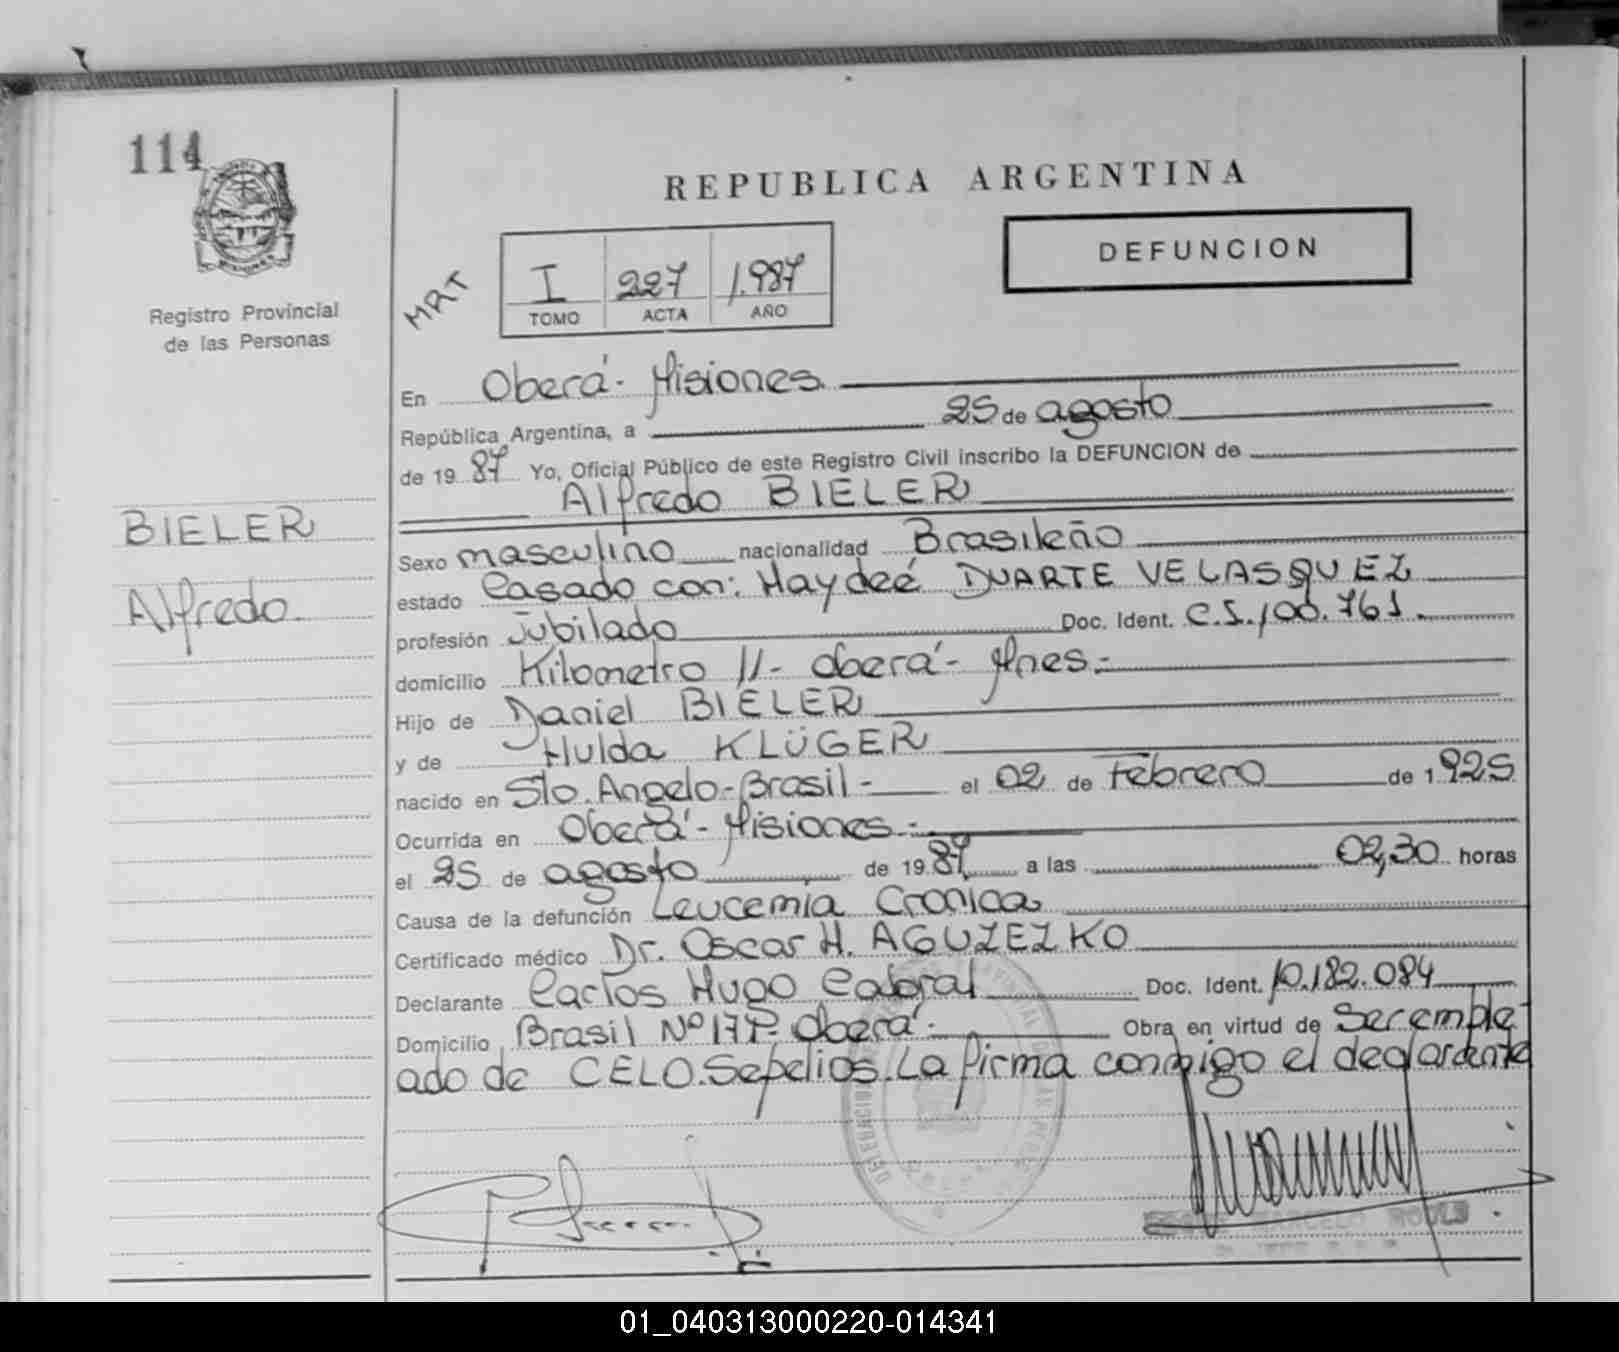 114
REPUBLICA ARGENTINA
DEFUNCION
MRT
I 227 1.987
TOMO ACTA AÑO
Registro Provincial
de las Personas
BIELER
Alfredo
En Oberá - Misiones
República Argentina, a 25 de agosto
de 19 87 Yo, Oficial Público de este Registro Civil inscribo la DEFUNCION de
Alfredo BIELER
Sexo masculino nacionalidad Brasileño
estado Casado con: Haydeé DUARTE VELASQUEZ
profesión Jubilado Doc. Ident. C.I. 100.761.
domicilio Kilometro 11 - Oberá - Mnes.-
Hijo de Daniel BIELER
y de Hulda KLÜGER
nacido en Sto. Angelo - Brasil - el 02 de Febrero de 1.925
Ocurrida en Oberá - Misiones.-
el 25 de agosto de 19 87 a las 02,30 horas
Causa de la defunción Leucemia Cronica
Certificado médico Dr. Oscar H. AGUZEZKO
Declarante Carlos Hugo Cabral Doc. Ident. 10.182.084
Domicilio Brasil Nº 177- Oberá - Obra en virtud de Ser emple-
ado de CELO. Sepelios. La firma conmigo el declarante
MARCELO
01_040313000220-014341